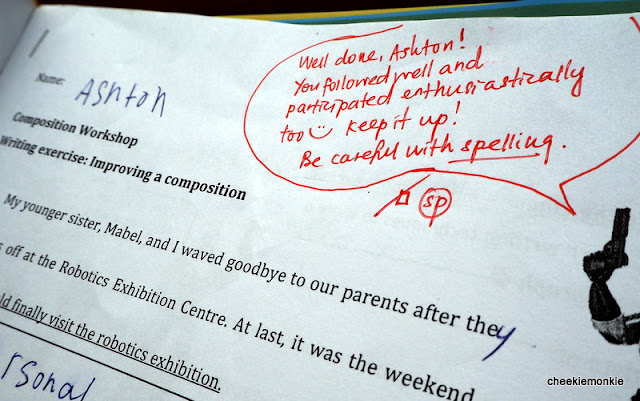 Well done, Ashton!
You followed well and
participated enthusiastically
too keep it up!
Be careful with spelling.
sp
Name: Ashton
Composition Workshop
Writing exercise: Improving a composition
My younger sister, Mabel, and I waved goodbye to our parents after they
off at the Robotics Exhibition Centre. At last, it was the weekend
finally visit the robotics exhibition.
rsonal
cheekiemonkie